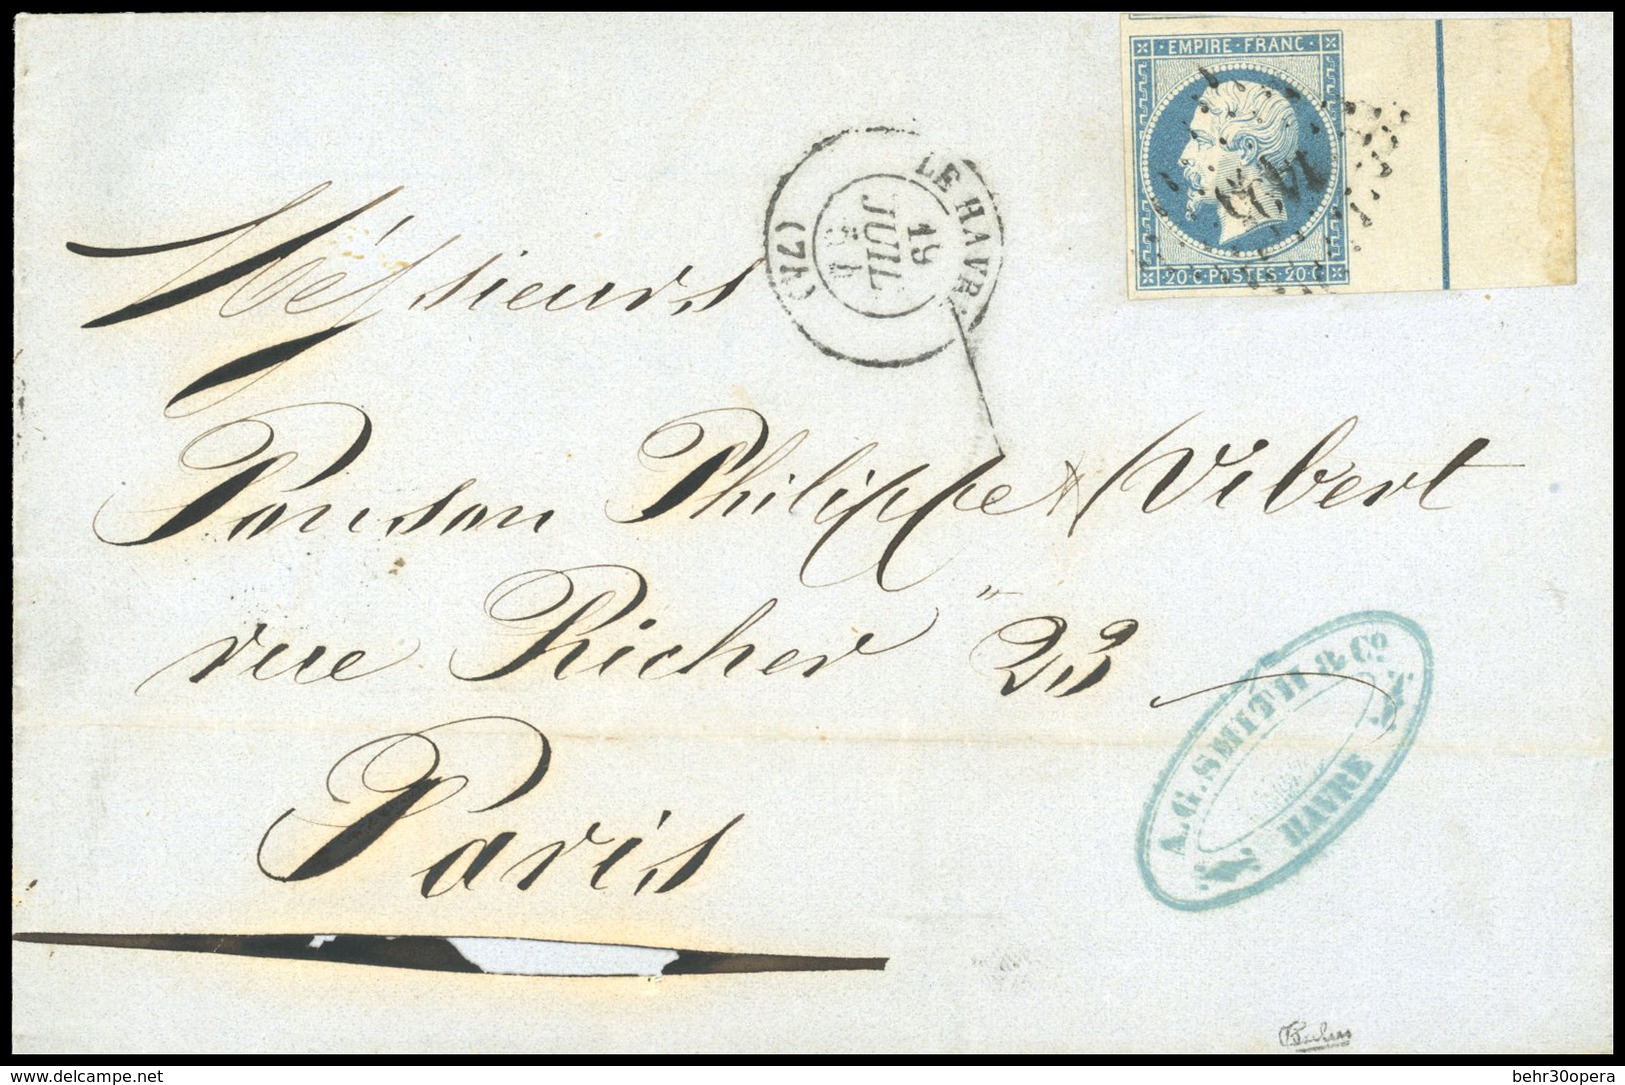 EMPIRE-FRANC
1495
20 C-POSTES-20 C
LE HAVRE
19
JUIL
54
(74)
Messieurs
Ponson Philippe & Vibert
rue Richer 23
Paris
A.G. SMITH & Co
HAVRE
delcampe.net
behr30opera